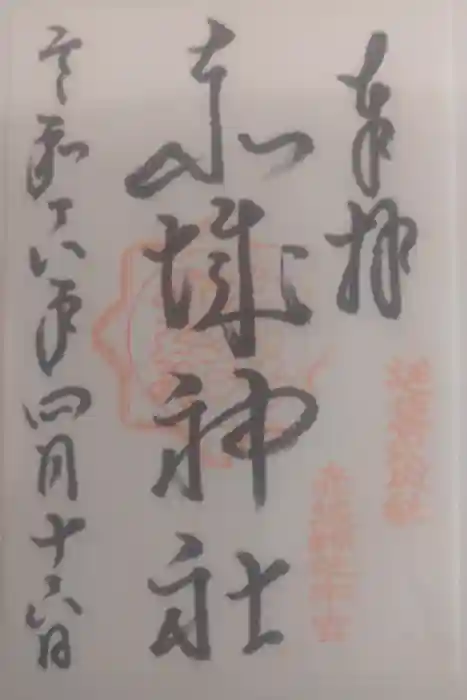 奉拝
赤城神社
令和六年四月十六日